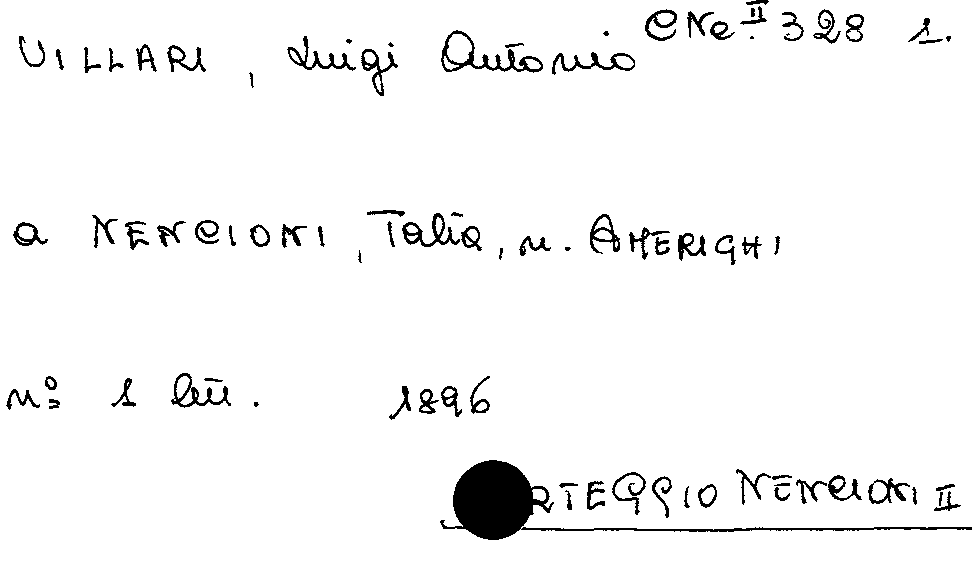 VILLARI, Luigi Antonio CNe. II 328 1.
a NENCIONI, Talia, n. AMERIGHI
nº 1 lett. 1896
RTEGGIO NENCIONI II